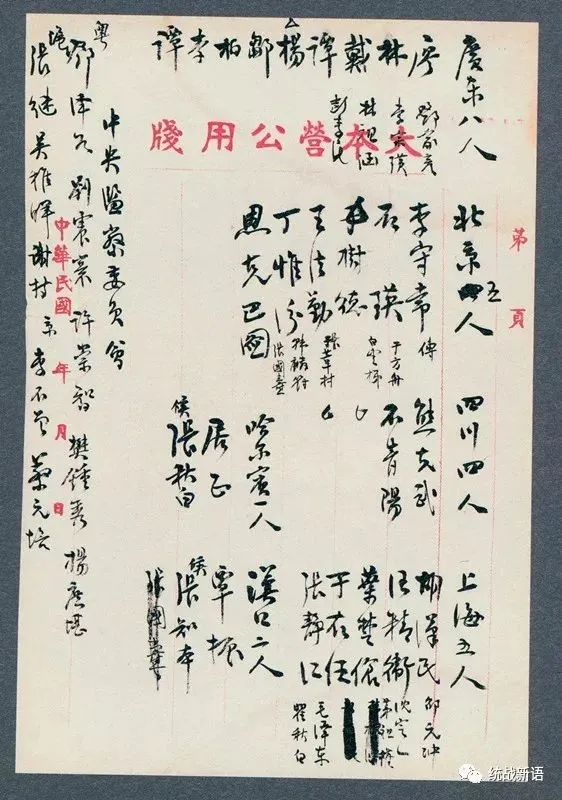 大本營公用牋
第 頁
廣東八人
廖
鄧家彥
林
李宗黃
戴
林祖涵
譚
彭素民
楊
鄒
柏
李
譚
北京五人
李守常 傅
石瑛
于方舟
白雲梯
于樹德
王法勤
韓麟符
丁惟汾
張國燾
恩克巴圖
四川四人
熊克武
石青陽
哈尔賓一人
居正
候
張秋白
上海五人
胡漢民
邵元冲
汪精衛
沈定一
茅祖權
葉楚傖
于右任
張靜江
毛泽东
瞿秋白
漢口二人
覃振
候
張知本
中央監察委員會
粵
鄧澤如 劉震寰 許崇智 樊鍾秀 楊庶堪
滬
張継 吳稚暉 謝持 京 李石曾 蔡元培
中華民國 年 月 日
统战新语